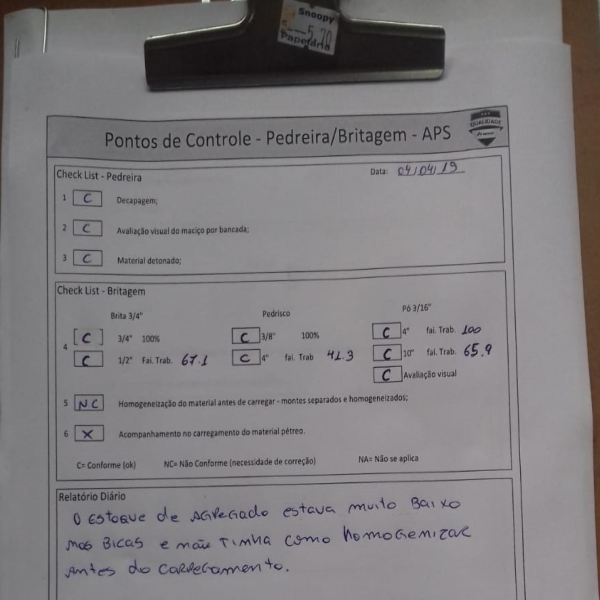 Snoopy
5,70
Papelaria
Pontos de Controle - Pedreira/Britagem - APS
QUALIDADE
Check List - Pedreira Data: 04/04/19
1 C Decapagem;
2 C Avaliação visual do maciço por bancada;
3 C Material detonado;
Check List - Britagem
Brita 3/4" Pedrisco Pó 3/16"
4 C 3/4" 100% C 3/8" 100% C 4" fai. Trab. 100
C 1/2" Fai. Trab. 67.1 C 4" fai. Trab 41.3 C 10" fai. Trab. 65.9
C Avaliação visual
5 NC Homogeneização do material antes de carregar - montes separados e homogeneizados;
6 X Acompanhamento no carregamento do material pétreo.
C= Conforme (ok) NC= Não Conforme (necessidade de correção) NA= Não se aplica
Relatório Diário
O ESTOQUE de AGREGADO estava muito BAIXO
nas BICAS e não TINHA como homoGENIZAR
ANTES do CARREGAMENTO.